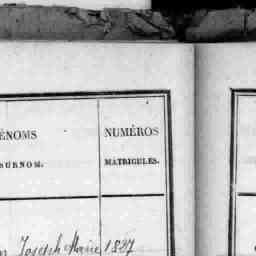 ÉNOMS
NUMÉROS
SURNOM.
MATRICULES.
Joseph Marie 1827